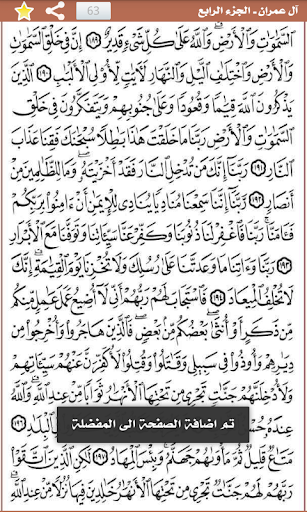 آل عمران - الجزء الرابع
63
السَّمَٰوَٰتِ وَالْأَرْضِ وَاللَّهُ عَلَىٰ كُلِّ شَيْءٍ قَدِيرٌ ١٨٩ إِنَّ فِي خَلْقِ السَّمَٰوَٰتِ
وَالْأَرْضِ وَاخْتِلَٰفِ الَّيْلِ وَالنَّهَارِ لَءَايَٰتٍ لِّأُولِي الْأَلْبَٰبِ ١٩٠ الَّذِينَ
يَذْكُرُونَ اللَّهَ قِيَٰمًا وَقُعُودًا وَعَلَىٰ جُنُوبِهِمْ وَيَتَفَكَّرُونَ فِي خَلْقِ
السَّمَٰوَٰتِ وَالْأَرْضِ رَبَّنَا مَا خَلَقْتَ هَٰذَا بَٰطِلًا سُبْحَٰنَكَ فَقِنَا عَذَابَ
النَّارِ ١٩١ رَبَّنَا إِنَّكَ مَن تُدْخِلِ النَّارَ فَقَدْ أَخْزَيْتَهُ وَمَا لِلظَّٰلِمِينَ مِنْ
أَنصَارٍ ١٩٢ رَّبَّنَا إِنَّنَا سَمِعْنَا مُنَادِيًا يُنَادِي لِلْإِيمَٰنِ أَنْ ءَامِنُوا بِرَبِّكُمْ
فَـَٔامَنَّا رَبَّنَا فَاغْفِرْ لَنَا ذُنُوبَنَا وَكَفِّرْ عَنَّا سَيِّـَٔاتِنَا وَتَوَفَّنَا مَعَ الْأَبْرَارِ
١٩٣ رَبَّنَا وَءَاتِنَا مَا وَعَدتَّنَا عَلَىٰ رُسُلِكَ وَلَا تُخْزِنَا يَوْمَ الْقِيَٰمَةِ إِنَّكَ
لَا تُخْلِفُ الْمِيعَادَ ١٩٤ فَاسْتَجَابَ لَهُمْ رَبُّهُمْ أَنِّي لَا أُضِيعُ عَمَلَ عَٰمِلٍ مِّنكُم
مِّن ذَكَرٍ أَوْ أُنثَىٰ بَعْضُكُم مِّن بَعْضٍ فَالَّذِينَ هَاجَرُوا وَأُخْرِجُوا مِن
دِيَٰرِهِمْ وَأُوذُوا فِي سَبِيلِي وَقَٰتَلُوا وَقُتِلُوا لَأُكَفِّرَنَّ عَنْهُمْ سَيِّـَٔاتِهِمْ
وَلَأُدْخِلَنَّهُمْ جَنَّٰتٍ تَجْرِي مِن تَحْتِهَا الْأَنْهَٰرُ ثَوَابًا مِّنْ عِندِ اللَّهِ وَاللَّهُ
عِندَهُ
تم اضافة الصفحة الى المفضلة
مَتَٰعٌ قَلِيلٌ ثُمَّ مَأْوَىٰهُمْ جَهَنَّمُ وَبِئْسَ الْمِهَادُ ١٩٧ لَٰكِنِ الَّذِينَ اتَّقَوْا
رَبَّهُمْ لَهُمْ جَنَّٰتٌ تَجْرِي مِن تَحْتِهَا الْأَنْهَٰرُ خَٰلِدِينَ فِيهَا نُزُلًا مِّنْ عِندِ اللَّهِ